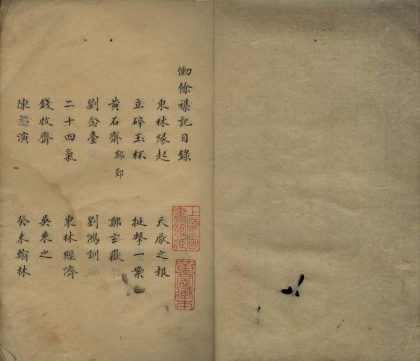 慟餘襍記目錄
東林緣起
天啟之報
立碎玉杯
挺擊一案
黃石齋鄭鄤
鄭玄嶽
劉念臺
劉鴻訓
二十四氣
東林經濟
錢牧齋
吳來之
陳啟演
癸未翰林